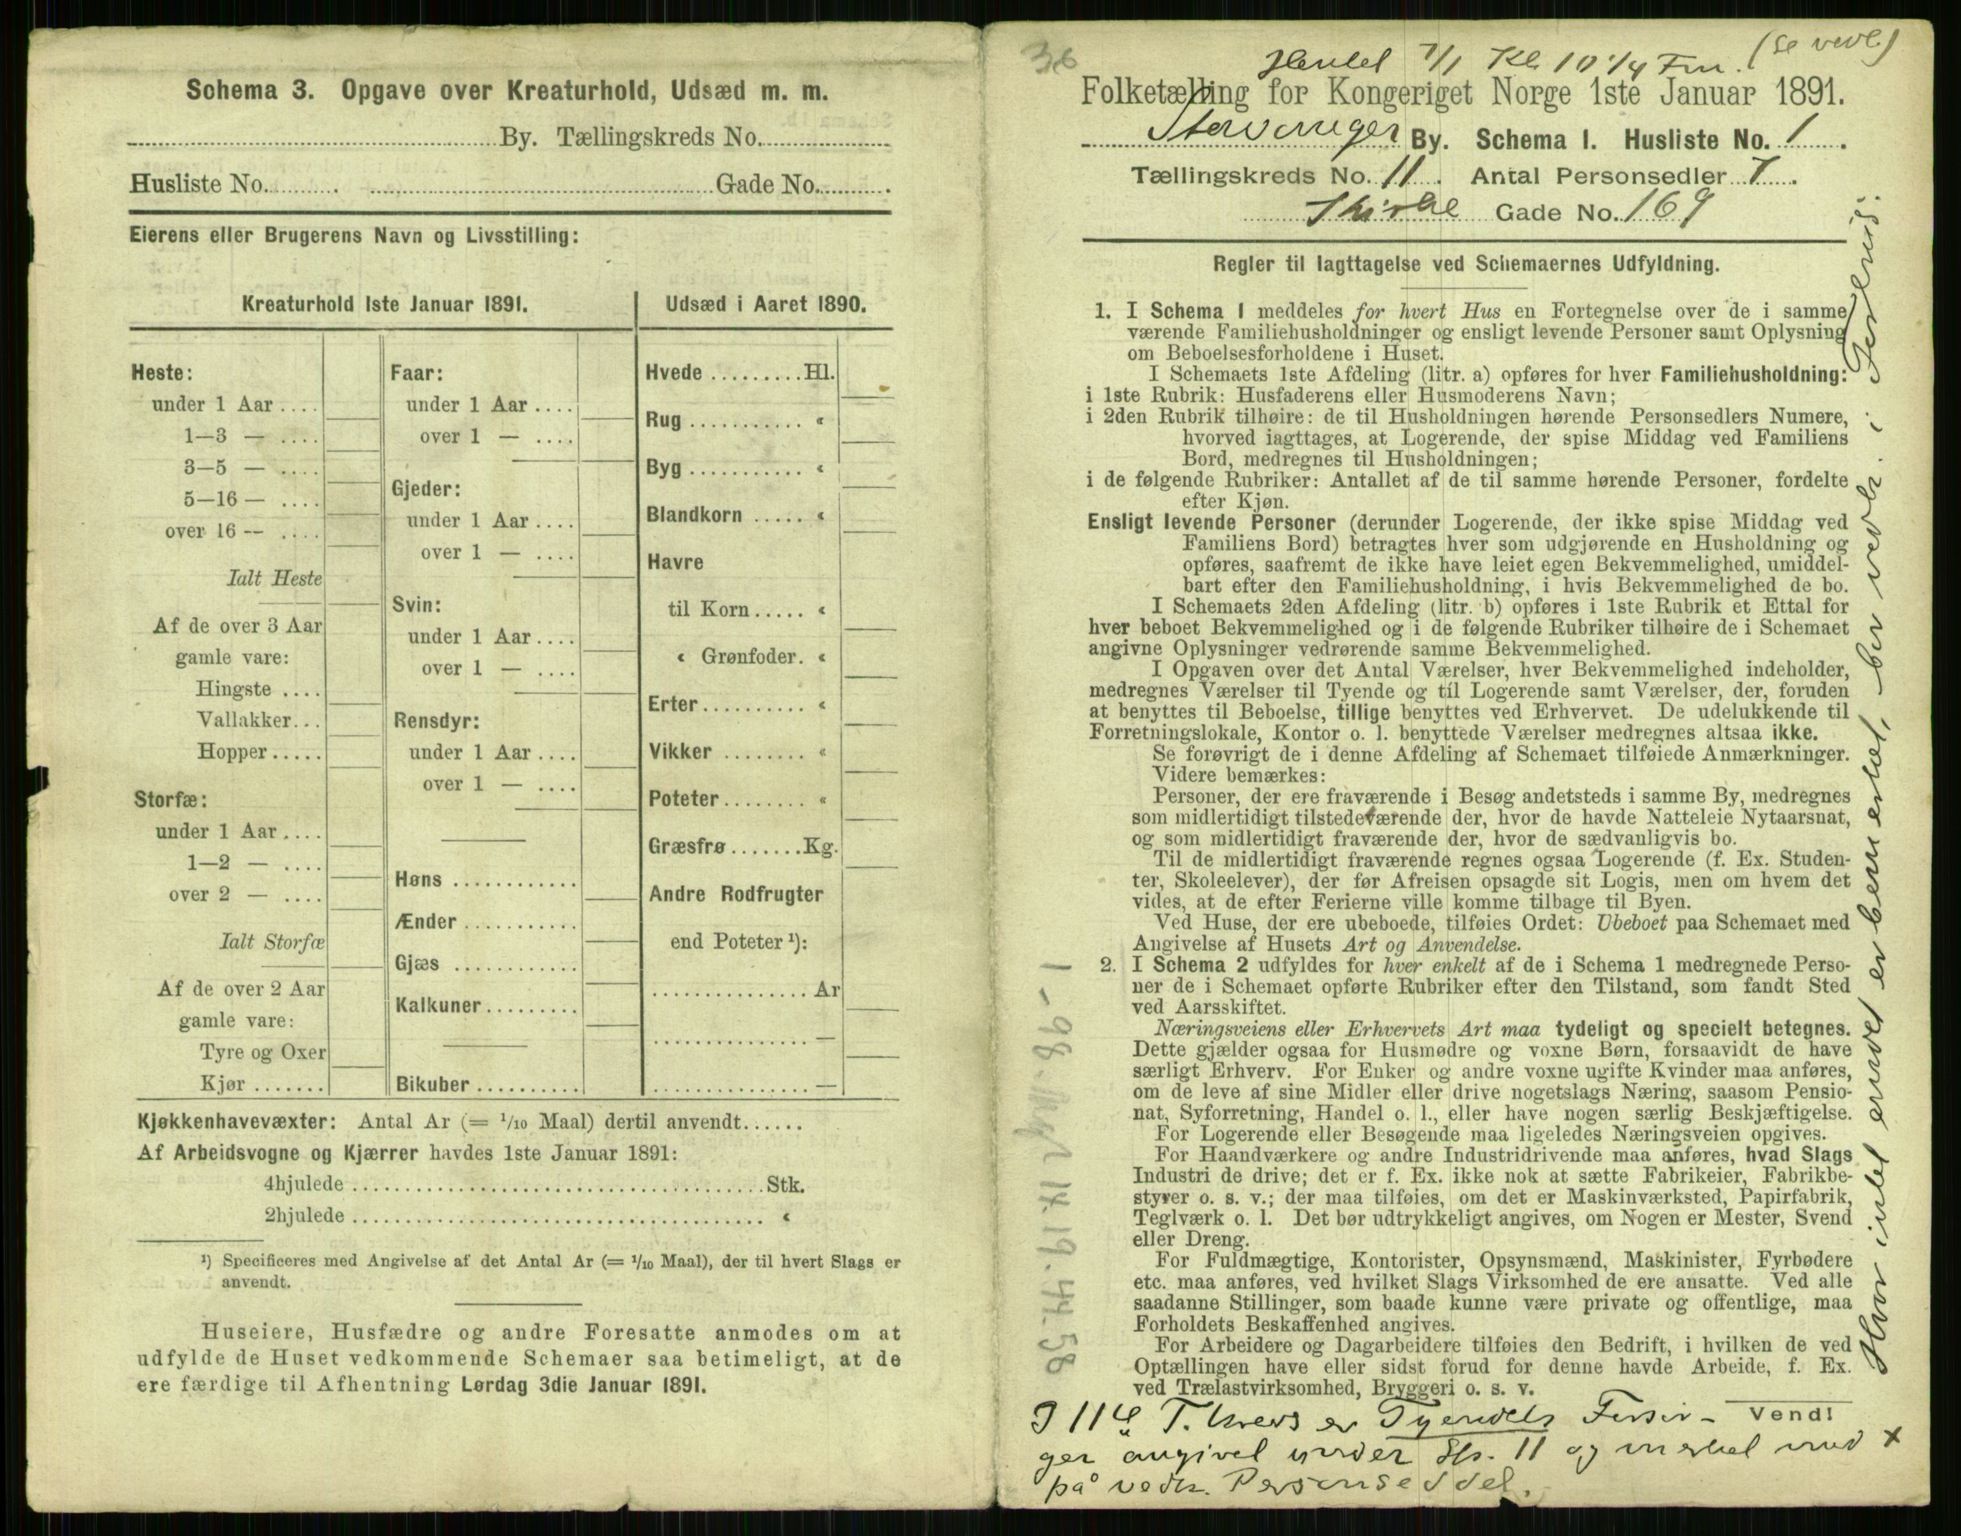 Schema 3. Opgave over Kreaturhold, Udsæd m. m.
By. Tællingskreds No.
Husliste No. Gade No.
Eierens eller Brugerens Navn og Livsstilling:
Kreaturhold 1ste Januar 1891.
Heste:
under 1 Aar
1—3 —
3—5 —
5—16 —
over 16 —
Ialt Heste
Af de over 3 Aar
gamle vare:
Hingste
Vallakker
Hopper
Storfæ:
under 1 Aar
1—2 —
over 2 —
Ialt Storfæ
Af de over 2 Aar
gamle vare:
Tyre og Oxer
Kjør
Faar:
under 1 Aar
over 1 —
Gjeder:
under 1 Aar
over 1 —
Svin:
under 1 Aar
over 1 —
Rensdyr:
under 1 Aar
over 1 —
Høns
Ænder
Gjæs
Kalkuner
Bikuber
Udsæd i Aaret 1890.
Hvede Hl.
Rug «
Byg «
Blandkorn «
Havre
til Korn «
« Grønfoder. «
Erter «
Vikker «
Poteter «
Græsfrø Kg.
Andre Rodfrugter
end Poteter ¹):
Ar
—
—
Kjøkkenhavevæxter: Antal Ar (= 1/10 Maal) dertil anvendt
Af Arbeidsvogne og Kjærrer havdes 1ste Januar 1891:
4hjulede Stk.
2hjulede «
¹) Specificeres med Angivelse af det Antal Ar (= 1/10 Maal), der til hvert Slags er
anvendt.
Huseiere, Husfædre og andre Foresatte anmodes om at
udfylde de Huset vedkommende Schemaer saa betimeligt, at de
ere færdige til Afhentning Lørdag 3die Januar 1891.
36
Hentet 7/1 Kl. 10 1/4 Fm. (se vedl.)
Folketælling for Kongeriget Norge 1ste Januar 1891.
Stavanger By. Schema 1. Husliste No. 1
Tællingskreds No. 11. Antal Personsedler 7
Gade No. 169
Regler til Iagttagelse ved Schemaernes Udfyldning.
1. I Schema 1 meddeles for hvert Hus en Fortegnelse over de i samme
værende Familiehusholdninger og ensligt levende Personer samt Oplysning
om Beboelsesforholdene i Huset.
I Schemaets 1ste Afdeling (litr. a) opføres for hver Familiehusholdning:
i 1ste Rubrik: Husfaderens eller Husmoderens Navn;
i 2den Rubrik tilhøire: de til Husholdningen hørende Personsedlers Numere,
hvorved iagttages, at Logerende, der spise Middag ved Familiens
Bord, medregnes til Husholdningen;
i de følgende Rubriker: Antallet af de til samme hørende Personer, fordelte
efter Kjøn.
Ensligt levende Personer (derunder Logerende, der ikke spise Middag ved
Familiens Bord) betragtes hver som udgjørende en Husholdning og
opføres, saafremt de ikke have leiet egen Bekvemmelighed, umiddel-
bart efter den Familiehusholdning, i hvis Bekvemmelighed de bo.
I Schemaets 2den Afdeling (litr. b) opføres i 1ste Rubrik et Ettal for
hver beboet Bekvemmelighed og i de følgende Rubriker tilhøire de i Schemaet
angivne Oplysninger vedrørende samme Bekvemmelighed.
I Opgaven over det Antal Værelser, hver Bekvemmelighed indeholder,
medregnes Værelser til Tyende og til Logerende samt Værelser, der, foruden
at benyttes til Beboelse, tillige benyttes ved Erhvervet. De udelukkende til
Forretningslokale, Kontor o. l. benyttede Værelser medregnes altsaa ikke.
Se forøvrigt de i denne Afdeling af Schemaet tilføiede Anmærkninger.
Videre bemærkes:
Personer, der ere fraværende i Besøg andetsteds i samme By, medregnes
som midlertidigt tilstedeværende der, hvor de havde Natteleie Nytaarsnat,
og som midlertidigt fraværende der, hvor de sædvanligvis bo.
Til de midlertidigt fraværende regnes ogsaa Logerende (f. Ex. Studen-
ter, Skoleelever), der før Afreisen opsagde sit Logis, men om hvem det
vides, at de efter Ferierne ville komme tilbage til Byen.
Ved Huse, der ere ubeboede, tilføies Ordet: Ubeboet paa Schemaet med
Angivelse af Husets Art og Anvendelse.
2. I Schema 2 udfyldes for hver enkelt af de i Schema 1 medregnede Perso-
ner de i Schemaet opførte Rubriker efter den Tilstand, som fandt Sted
ved Aarsskiftet.
Næringsveiens eller Erhvervets Art maa tydeligt og specielt betegnes.
Dette gjælder ogsaa for Husmødre og voxne Børn, forsaavidt de have
særligt Erhverv. For Enker og andre voxne ugifte Kvinder maa anføres,
om de leve af sine Midler eller drive nogetslags Næring, saasom Pensio-
nat, Syforretning, Handel o. l., eller have nogen særlig Beskjæftigelse.
For Logerende eller Besøgende maa ligeledes Næringsveien opgives.
For Haandværkere og andre Industridrivende maa anføres, hvad Slags
Industri de drive; det er f. Ex. ikke nok at sætte Fabrikeier, Fabrikbe-
styrer o. s. v.; der maa tilføies, om det er Maskinværksted, Papirfabrik,
Teglværk o. l. Det bør udtrykkeligt angives, om Nogen er Mester, Svend
eller Dreng.
For Fuldmægtige, Kontorister, Opsynsmænd, Maskinister, Fyrbødere
etc. maa anføres, ved hvilket Slags Virksomhed de ere ansatte. Ved alle
saadanne Stillinger, som baade kunne være private og offentlige, maa
Forholdets Beskaffenhed angives.
For Arbeidere og Dagarbeidere tilføies den Bedrift, i hvilken de ved
Optællingen have eller sidst forud for denne havde Arbeide, f. Ex.
ved Trælastvirksomhed, Bryggeri o. s. v.
Vend!
I 11te T. kreds er Tyendets Forsør-
ger angivet under Hs. 11 og merket med x
på vedk. Personseddel.
Hvor intet andet er bemerket, bor vedk. i